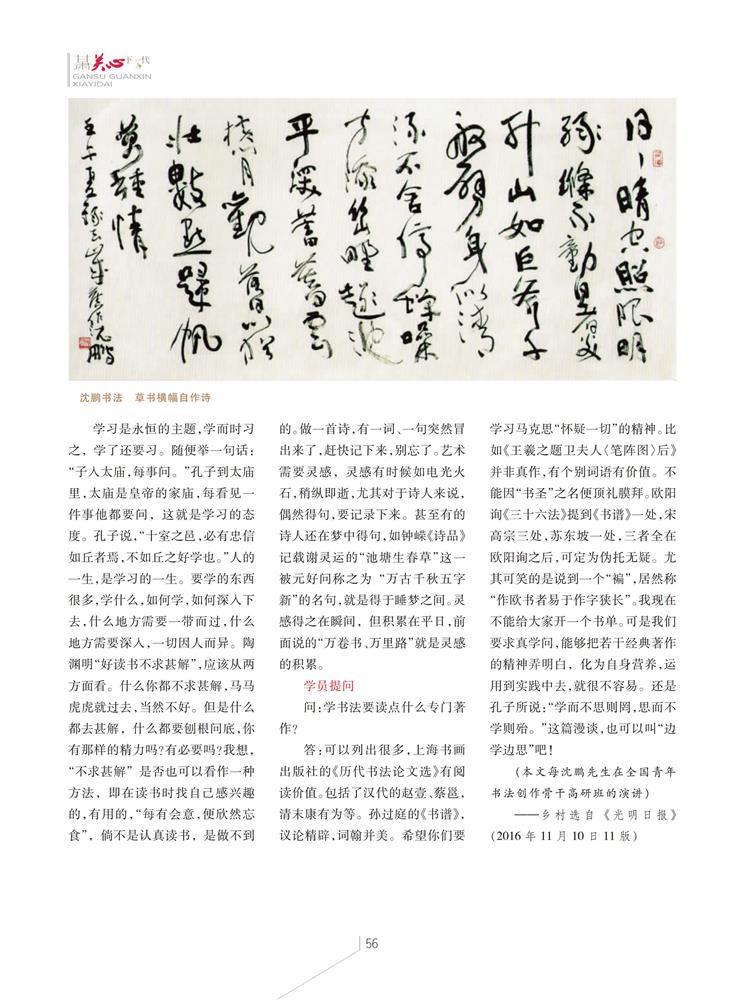 甘肃关心下一代
GANSU GUANXIN
XIAYIDAI
沈鹏书法 草书横幅自作诗
学习是永恒的主题,学而时习
之，学了还要习。随便举一句话：
“子入太庙,每事问。”孔子到太庙
里,太庙是皇帝的家庙,每看见一
件事他都要问，这就是学习的态
度。孔子说,“十室之邑,必有忠信
如丘者焉,不如丘之好学也。”人的
一生,是学习的一生。要学的东西
很多,学什么,如何学,如何深入下
去,什么地方需要一带而过,什么
地方需要深入,一切因人而异。陶
渊明“好读书不求甚解”,应该从两
方面看。什么你都不求甚解,马马
虎虎就过去,当然不好。但是什么
都去甚解，什么都要刨根问底,你
有那样的精力吗?有必要吗?我想,
“不求甚解”是否也可以看作一种
方法，即在读书时找自己感兴趣
的,有用的,“每有会意,便欣然忘
食”，倘不是认真读书，是做不到
的。做一首诗,有一词、一句突然冒
出来了,赶快记下来,别忘了。艺术
需要灵感，灵感有时候如电光火
石,稍纵即逝,尤其对于诗人来说,
偶然得句,要记录下来。甚至有的
诗人还在梦中得句,如钟嵘《诗品》
记载谢灵运的“池塘生春草”这一
被元好问称之为“万古千秋五字
新”的名句,就是得于睡梦之间。灵
感得之在瞬间，但积累在平日,前
面说的“万卷书、万里路”就是灵感
的积累。
学员提问
问:学书法要读点什么专门著
作?
答:可以列出很多,上海书画
出版社的《历代书法论文选》有阅
读价值。包括了汉代的赵壹、蔡邕,
清末康有为等。孙过庭的《书谱》,
议论精辟,词翰并美。希望你们要
学习马克思“怀疑一切”的精神。比
如《王羲之题卫夫人〈笔阵图〉后》
并非真作,有个别词语有价值。不
能因“书圣”之名便顶礼膜拜。欧阳
询《三十六法》提到《书谱》一处,宋
高宗三处,苏东坡一处,三者全在
欧阳询之后,可定为伪托无疑。尤
其可笑的是说到一个“褊”,居然称
“作欧书者易于作字狭长”。我现在
不能给大家开一个书单。可是我们
要求真学问,能够把若干经典著作
的精神弄明白，化为自身营养,运
用到实践中去,就很不容易。还是
孔子所说:“学而不思则罔,思而不
学则殆。”这篇漫谈,也可以叫“边
学边思”吧!
(本文每沈鹏先生在全国青年
书法创作骨干高研班的演讲)
——乡村选自《光明日报》
(2016年11月10日11版)
56